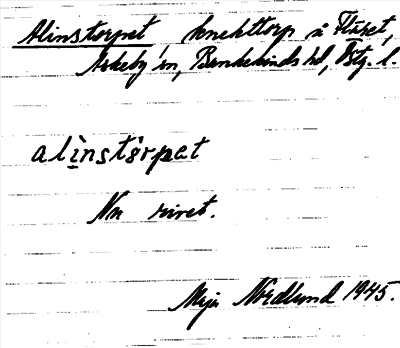 Alinstorpet, knekttorp å Fläret,
Askeby sn, Bankekinds hd, Östg. l.
alinstårpat
Nu rivet.
Nordlund 1945.